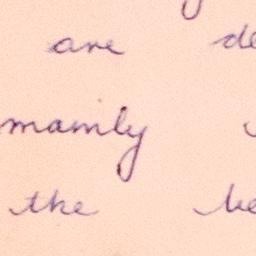 are de
mainly
the be